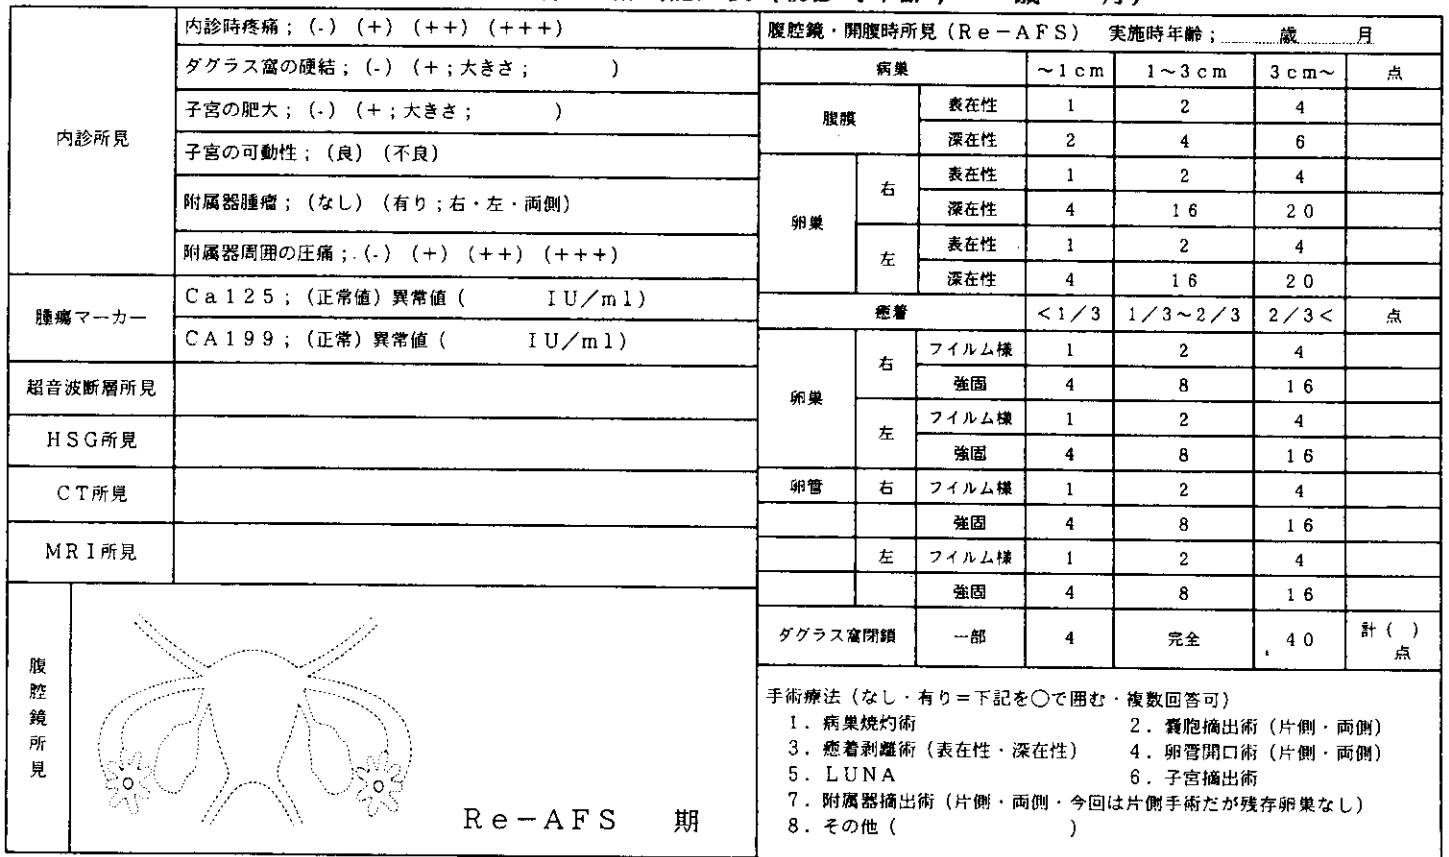 内診所見
内診時疼痛；(-) (+) (++) (+++)
ダグラス窩の硬結；(-) (+；大きさ； )
子宮の肥大；(-) (+；大きさ； )
子宮の可動性；(良) (不良)
附属器腫瘤；(なし) (有り；右・左・両側)
附属器周囲の圧痛；(-) (+) (++) (+++)
腫瘍マーカー
Ca125；(正常値) 異常値 ( IU/ml)
CA199；(正常) 異常値 ( IU/ml)
超音波断層所見
HSG所見
CT所見
MRI所見
腹腔鏡所見
Re－AFS 期
腹腔鏡・開腹時所見 (Re－AFS) 実施時年齢； 歳 月
病巣 ～1cm 1～3cm 3cm～ 点
腹膜 表在性 1 2 4
深在性 2 4 6
卵巣 右 表在性 1 2 4
深在性 4 16 20
左 表在性 1 2 4
深在性 4 16 20
癒着 <1/3 1/3～2/3 2/3< 点
卵巣 右 フイルム様 1 2 4
強固 4 8 16
左 フイルム様 1 2 4
強固 4 8 16
卵管 右 フイルム様 1 2 4
強固 4 8 16
左 フイルム様 1 2 4
強固 4 8 16
ダグラス窩閉鎖 一部 4 完全 40 計( )点
手術療法 (なし・有り＝下記を○で囲む・複数回答可)
1．病巣焼灼術 2．嚢胞摘出術 (片側・両側)
3．癒着剥離術 (表在性・深在性) 4．卵管開口術 (片側・両側)
5．LUNA 6．子宮摘出術
7．附属器摘出術 (片側・両側・今回は片側手術だが残存卵巣なし)
8．その他 ( )